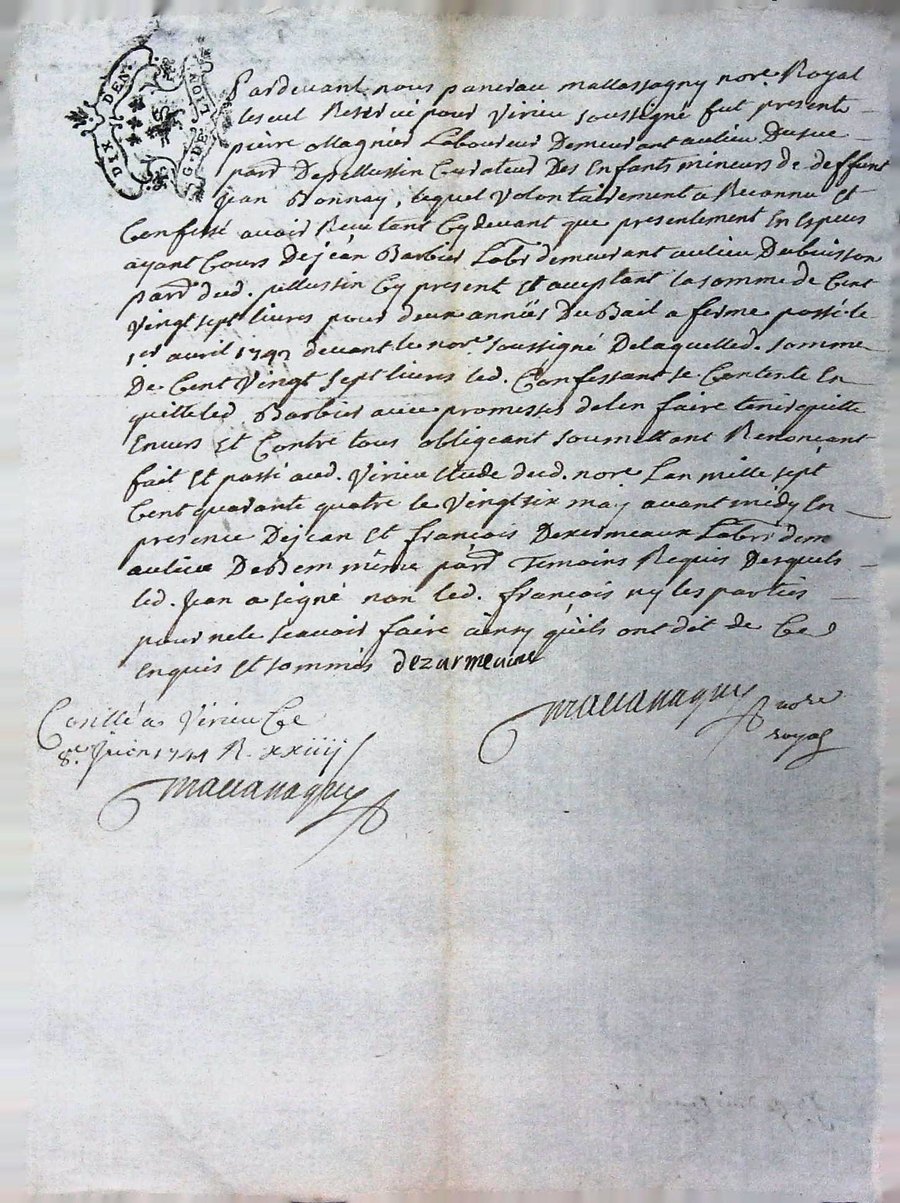 DIX DEN.
G. DE LION
Pardevant nous panerau mallassagny nore Royal
le seul Reservé pour Virieu soussigné fut present
pierre Magnier Laboureur Demeurant au lieu Dusue
parr Depellussin Curateur Des Enfants mineurs de deffunt
jean Bonnay, lequel volontairement a Reconnu Et
Confessé avoir Reeu tant Cydevant que presentement En Especes
ayant Cours Dejéan Barbier Labr demeurant au lieu Dubuisson
parr dud. pellussin Cy present Et acceptant la somme de Cent
Vingt sept livres pour deux annéés Du Bail a ferme passé le
1er avril 1742 devant le nore soussigné De laquelled. somme
De Cent Vingt sept livres led. Confessant se Contente En
quitte led Barbier avec promesses de len faire tenir quitte
Envers Et Contre tous obligeant soumettant Renonceant
fait Et passé aud. Virieu Etude dud. nore Lan mille sept
Cent quarante quatre le Vingt six maj avant midy En
presence Dejean Et françois Dezermeaux Labrs dem
au lieu DeBem même parr Temoins Requis Desquels
led. Jean a signé non led. françois ny les parties
pour ne le scavoir faire ainsy qu'ils ont dit de Ce
Enquis Et sommés dezarmeaux
nore
royal
Conllé a Virieu Ce
8e. Juin 1744 R. xxiiij s